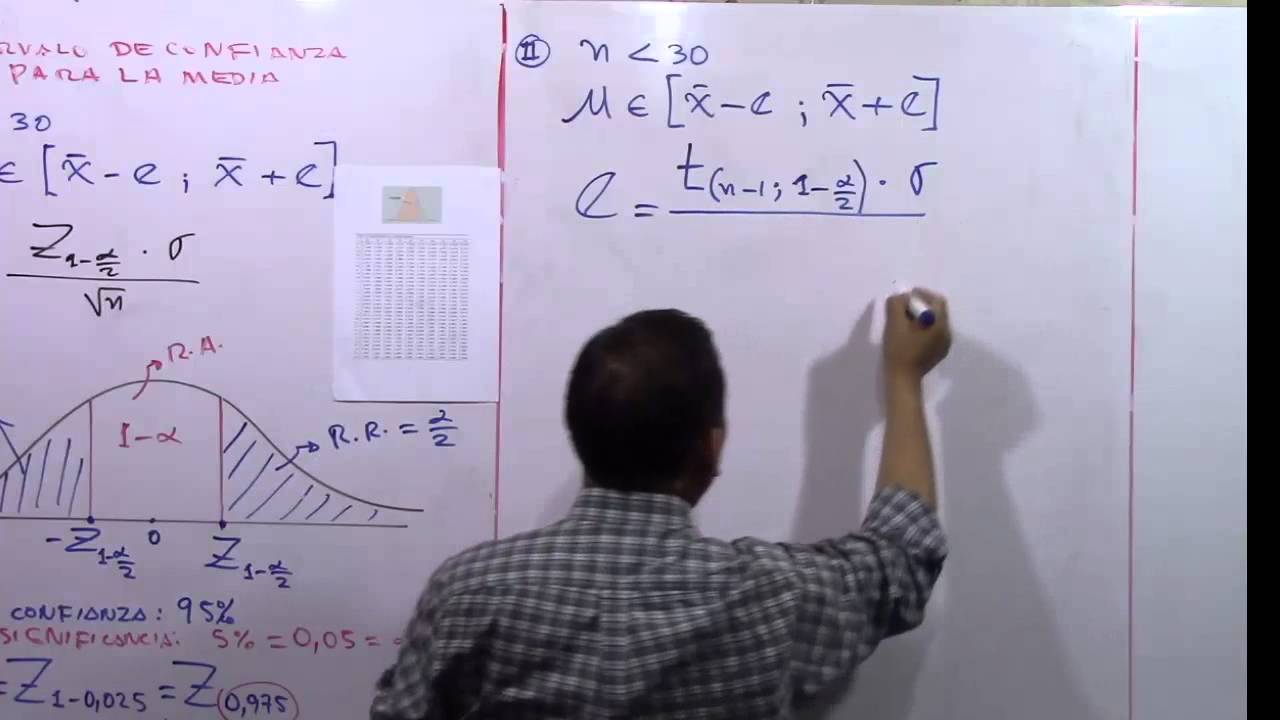 RVALO DE CONFIANZA
PARA LA MEDIA
30
∈ [x̄ - e ; x̄ + e]
Z₁₋α/₂ · σ
√n
R.A.
1-α
R.R. = α/2
-Z₁₋α/₂
0
Z₁₋α/₂
CONFIANZA: 95%
SIGNIFICANCIA: 5% = 0,05 =
= Z₁₋₀,₀₂₅ = Z₀,₉₇₅
II n < 30
μ ∈ [x̄ - e ; x̄ + e]
e = t(n-1 ; 1-α/2) · σ